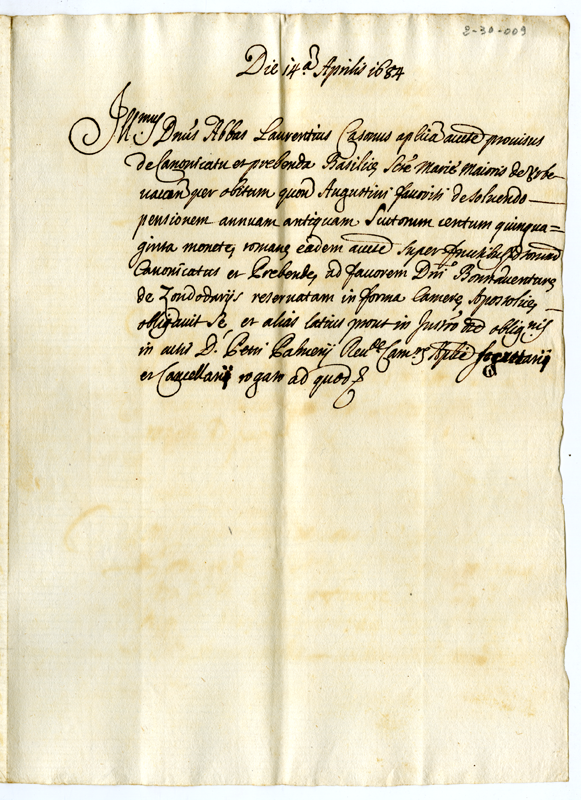 2-30-009
Die 14.a Aprilis 1684
Ill.mus Dnus Abbas Laurentius Casonus aplica aucte provisus
de Canonicatu et prebenda Basilice Scte Marie Maioris de Urbe
vacan per obitum quon Augustini favoriti de solvendo
pensionem annuam antiquam scutorum centum quinqua=
ginta monete, romane eadem aucte super fructibus
Canonicatus et Prebende, ad favorem Dni Bonaventure
de Zondodarijs reservatam in forma Camere Apostolice,
obligavit se et alias latius prout in Instro oblignis
in actis D. Petri Palmerij Revde Came Aplice secretarij
et Cancellarij rogato ad quod